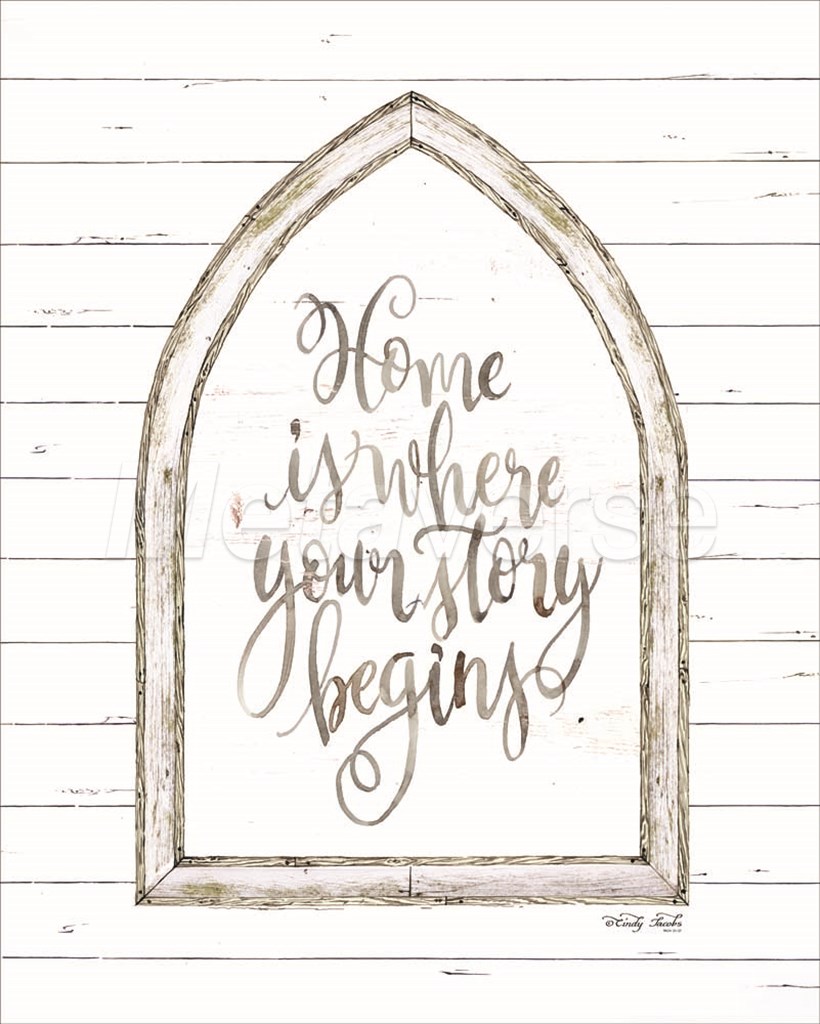 Home
is where
your story
begins
Metaverse
©Cindy Jacobs